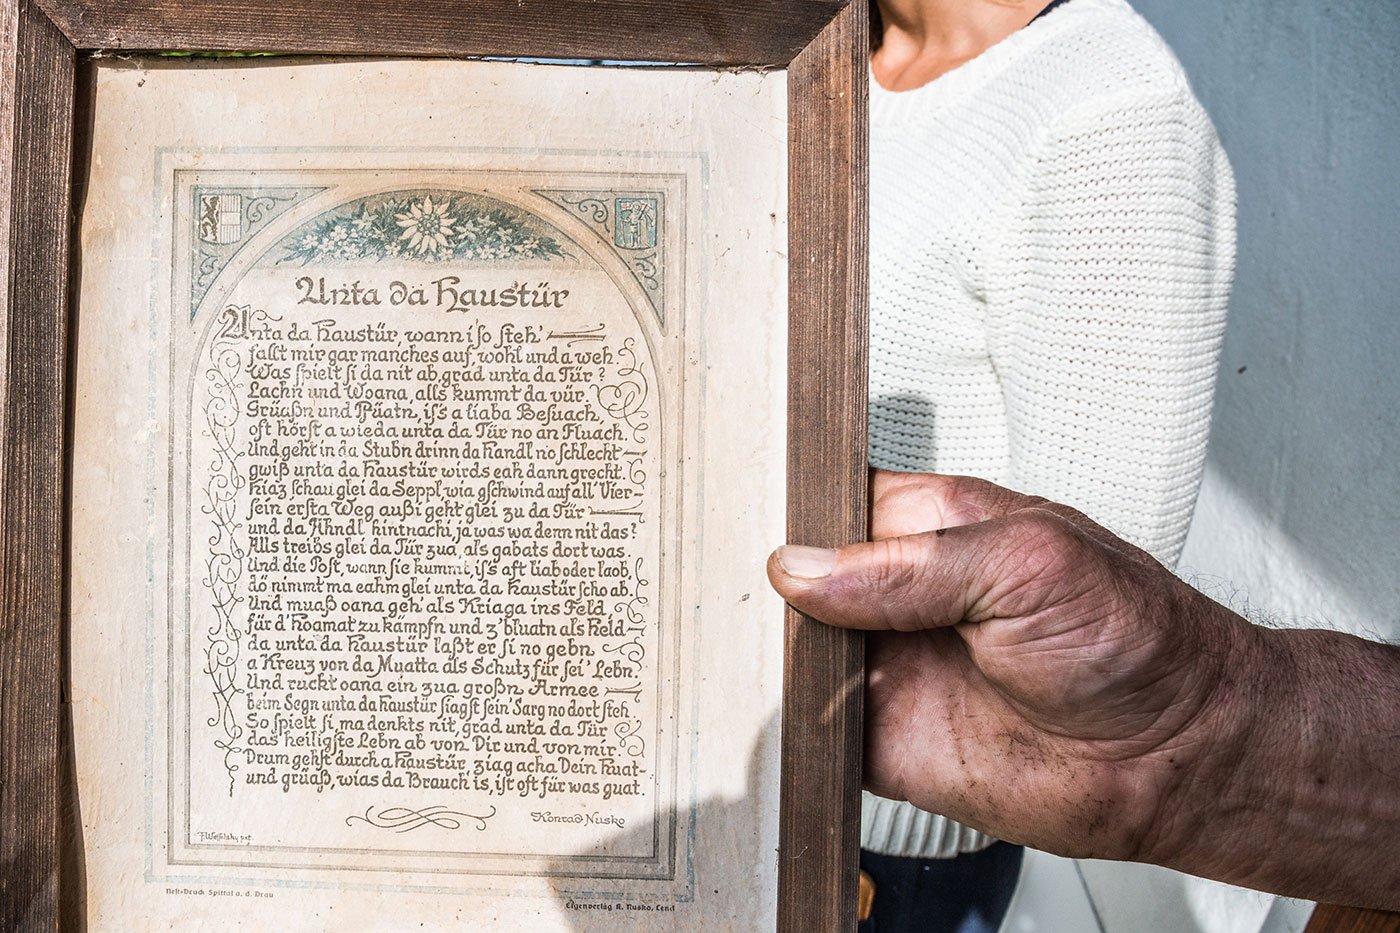 Unta da Haustür
Unta da Haustür, wann i so steh'
fallt mir gar manches auf, wohl und a weh.
Was spielt si da nit ab, grad unta da Tür?
Lachn und Woana, alls kummt da vür.
Grüaßn und Pfüatn, is's a liaba Besuach,
oft hörst a wieda unta da Tür no an Fluach.
Und geht in da Stubn drinn da Handl no schlecht
gwiß unta da Haustür wirds eah dann grecht.
Hiaz schau glei da Seppl, wia gschwind auf all' Vier-
sein ersta Weg außi geht glei zu da Tür
und da Ahndl hintnachi, ja was wa denn nit das?
Alls treibs glei da Tür zua, als gabats dort was.
Und die Post, wann sie kummt, is's aft liab oder laob,
dö nimmt ma eahm glei unta da Haustür scho ab.
Und muaß oana geh' als Kriaga ins Feld
für d'Hoamat zu kämpfn und z'bluatn als Held
da unta da Haustür laßt er si no gebn
a Kreuz von da Muatta als Schutz für sei' Lebn.
Und ruckt oana ein zua großn Armee
beim Segn unta da Haustür siagst sein' Sarg no dort steh.
So spielt si, ma denkts nit, grad unta da Tür
das heiligste Lebn ab von Dir und von mir.
Drum gehst durch a Haustür, ziag acha Dein Huat-
und grüaß, wias da Brauch is, ist oft für was guat.
Konrad Nusko
Nest-Druck Spittal a. d. Drau
Eigenverlag K. Nusko, Lend